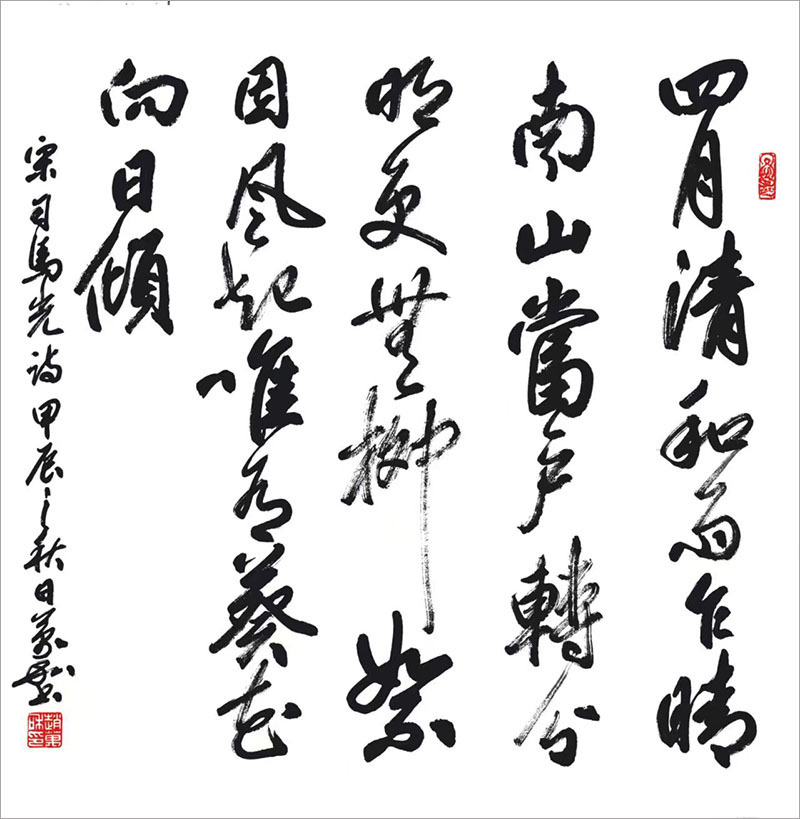 四月清和雨乍晴
南山當户轉分
明更無柳絮
因風起唯有葵花
向日傾
宋司馬光詩甲辰之秋日萬